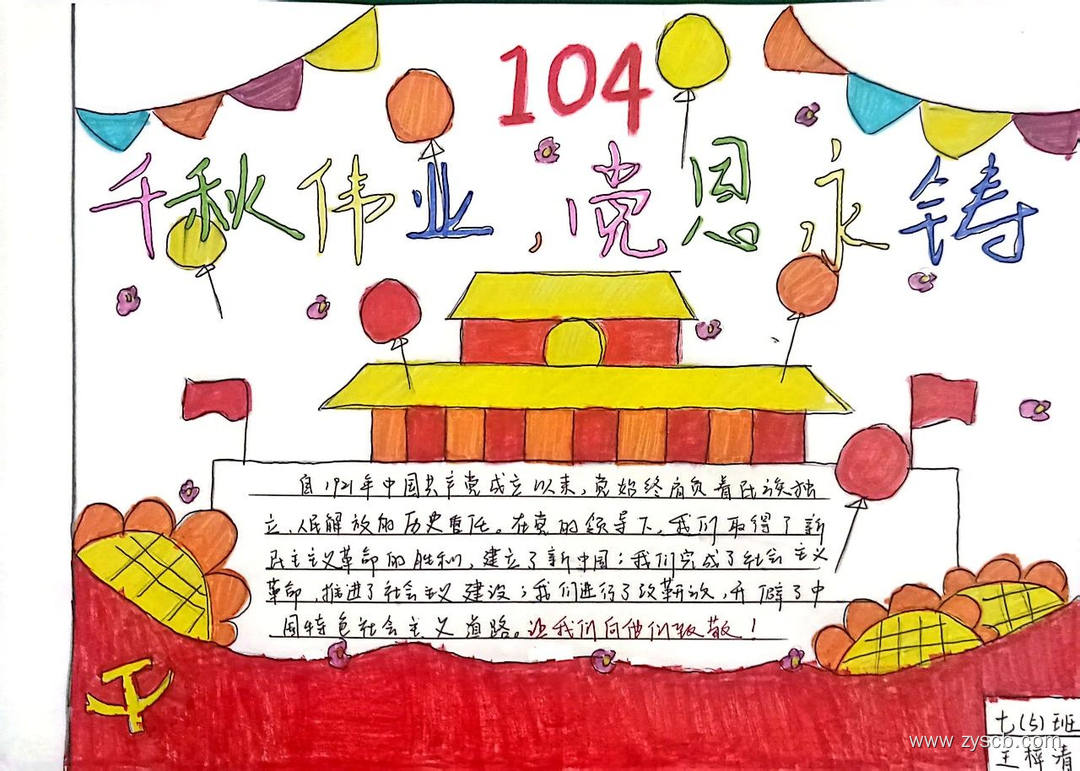 104
千秋伟业,党恩永铸
自1921年中国共产党成立以来,党始终肩负着民族独
立、人民解放的历史责任。在党的领导下,我们取得了新
民主主义革命的胜利,建立了新中国;我们完成了社会主义
革命,推进了社会主义建设;我们进行了改革开放,开辟了中
国特色社会主义道路。让我们向他们致敬!
七(5)班
王梓清
www.zyscb.com